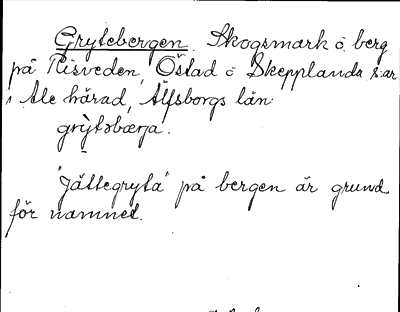 Grytebergen. Skogsmark o. berg
på Risveden, Östad o Skepplanda s:ar
i Ale härad, Älfsborgs län
grỳtəbærja.
"Jättegryta" på bergen är grund
för namnet.